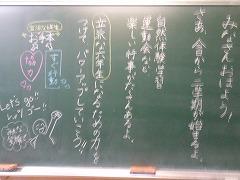 みなさんおはよう!
さあ、今日から二学期が始まるよ。
自然体験学習
運動会など
楽しい行事がたくさんあるよ。
立派な六年生になるための力を
つけて、パワーアップしていこう!!
立派な6年生
お手本
すぐ行動
協力
Let's go!!